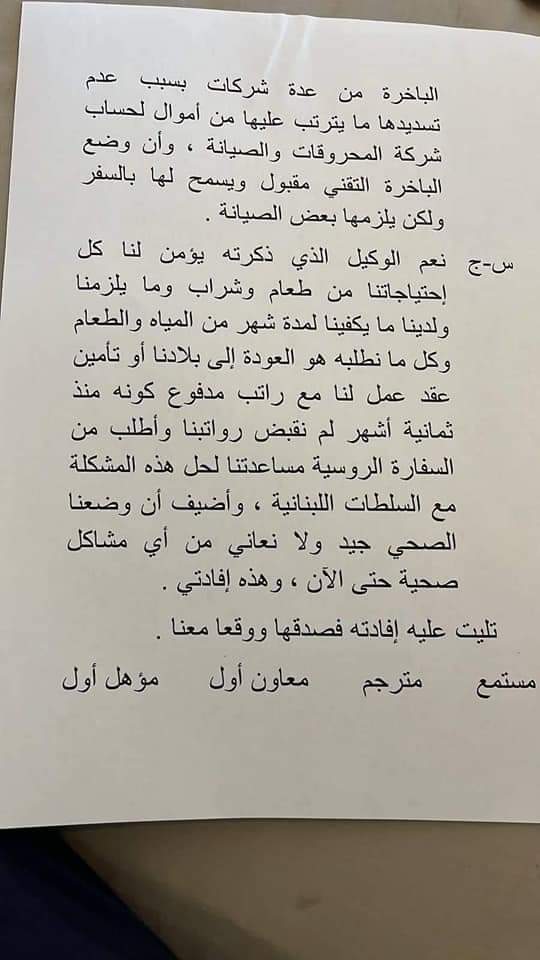 الباخرة من عدة شركات بسبب عدم
تسديدها ما يترتب عليها من أموال لحساب
شركة المحروقات والصيانة ، وأن وضع
الباخرة التقني مقبول ويسمح لها بالسفر
ولكن يلزمها بعض الصيانة .
س-ج نعم الوكيل الذي ذكرته يؤمن لنا كل
إحتياجاتنا من طعام وشراب وما يلزمنا
ولدينا ما يكفينا لمدة شهر من المياه والطعام
وكل ما نطلبه هو العودة إلى بلادنا أو تأمين
عقد عمل لنا مع راتب مدفوع كونه منذ
ثمانية أشهر لم نقبض رواتبنا وأطلب من
السفارة الروسية مساعدتنا لحل هذه المشكلة
مع السلطات اللبنانية ، وأضيف أن وضعنا
الصحي جيد ولا نعاني من أي مشاكل
صحية حتى الآن ، وهذه إفادتي .
تليت عليه إفادته فصدقها ووقعا معنا .
مستمع مترجم معاون أول مؤهل أول